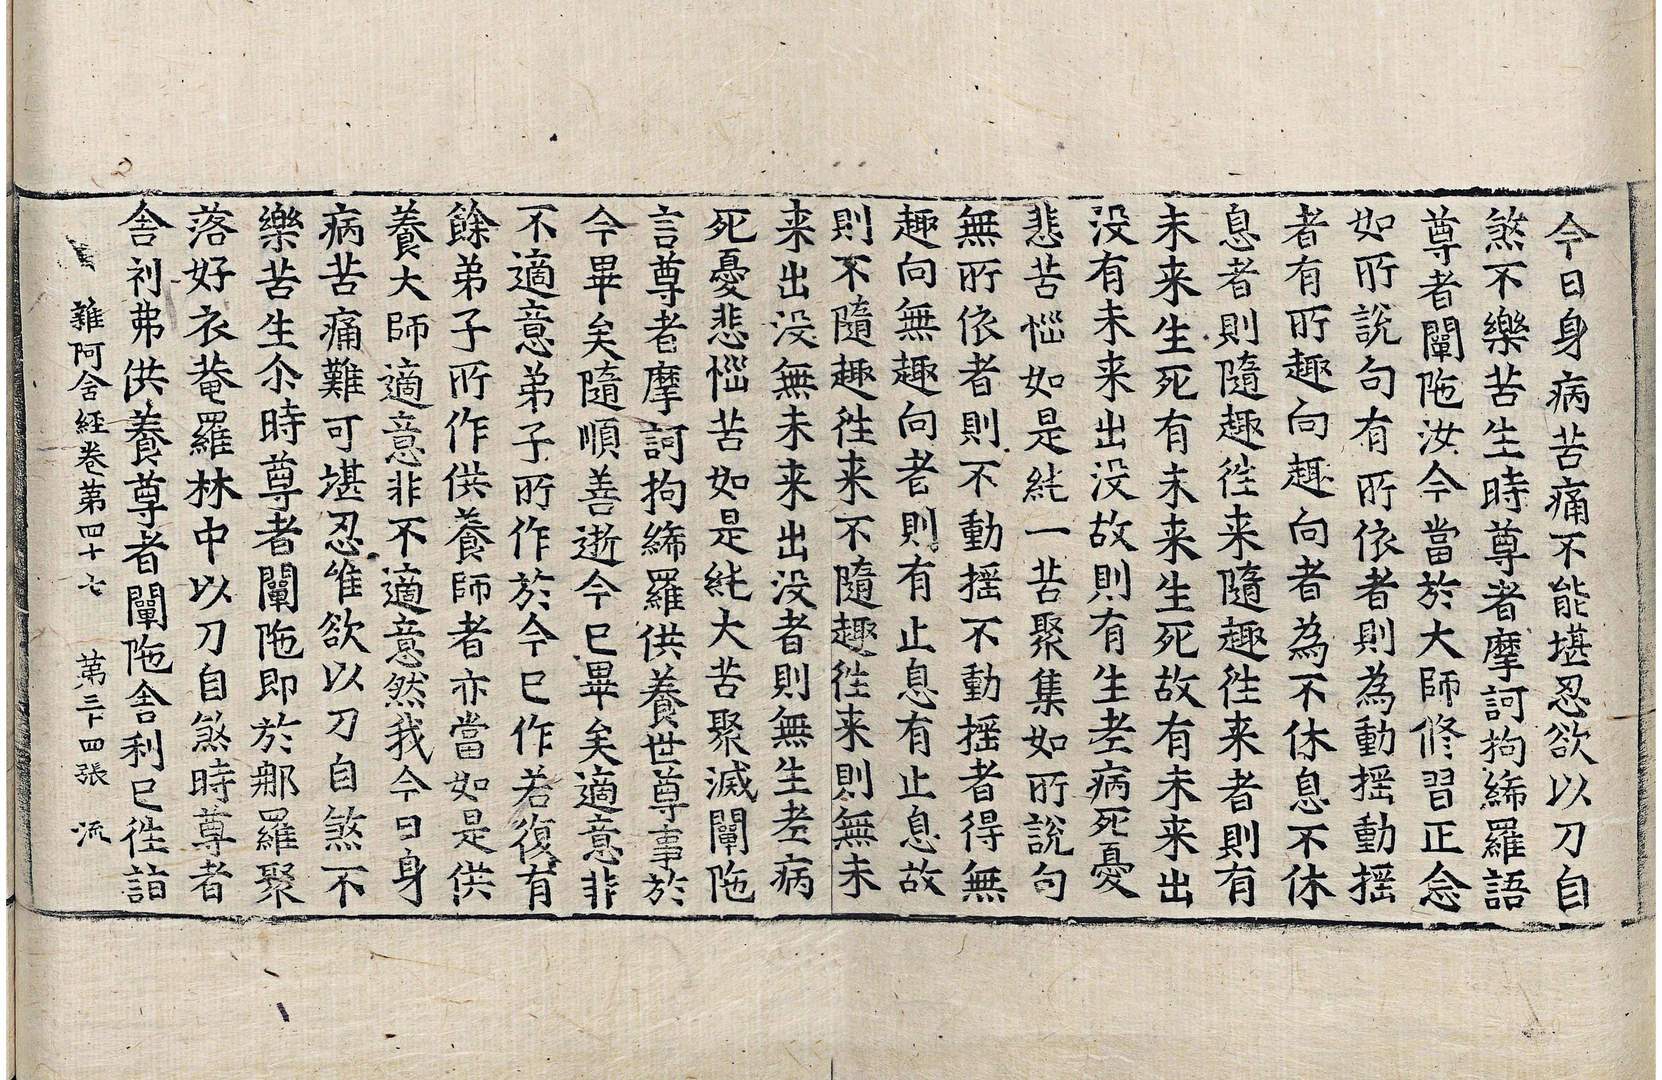 今日身病苦痛不能堪忍欲以刀自
煞不樂苦生時尊者摩訶拘絺羅語
尊者闡陁汝今當於大師修習正念
如所說句有所依者則為動揺動揺
者有所趣向趣向者為不休息不休
息者則隨趣徃来隨趣徃来者則有
未来生死有未来生死故有未来出
没有未来出没故則有生老病死憂
悲苦惱如是純一苦聚集如所說句
無所依者則不動揺不動揺者得無
趣向無趣向者則有止息有止息故
則不隨趣徃来不隨趣徃来則無未
来出没無未来出没者則無生老病
死憂悲惱苦如是純大苦聚滅闡陁
言尊者摩訶拘絺羅供養世尊事於
今畢矣隨順善逝今已畢矣適意非
不適意弟子所作於今已作若復有
餘弟子所作供養師者亦當如是供
養大師適意非不適意然我今日身
病苦痛難可堪忍唯欲以刀自煞不
樂苦生尒時尊者闡陁即於那羅聚
落好衣菴羅林中以刀自煞時尊者
舍利弗供養尊者闡陁舍利已徃詣
雜阿含經卷第四十七 第三十四張 流